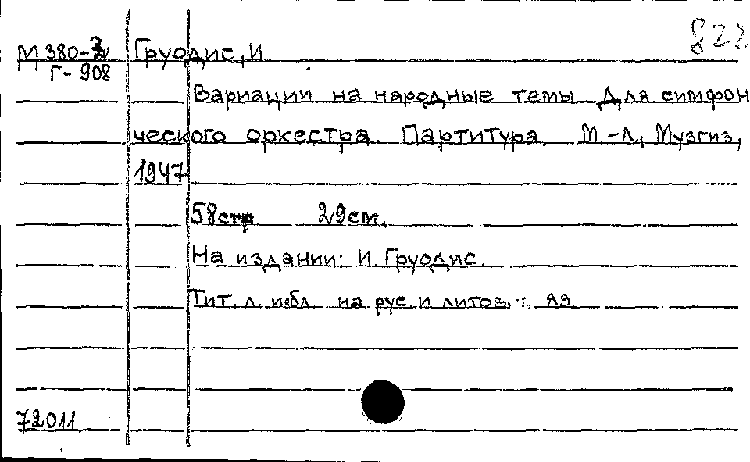 822
М 380-3 Груодис, И
Г-908
Вариации на народные темы Для симфон
ческого оркестра. Партитура М-Л, Музгиз,
1947
58стр 29см.
На издании: И. Груодис.
Тит. л. и обл. на рус. и литов. яз
72011